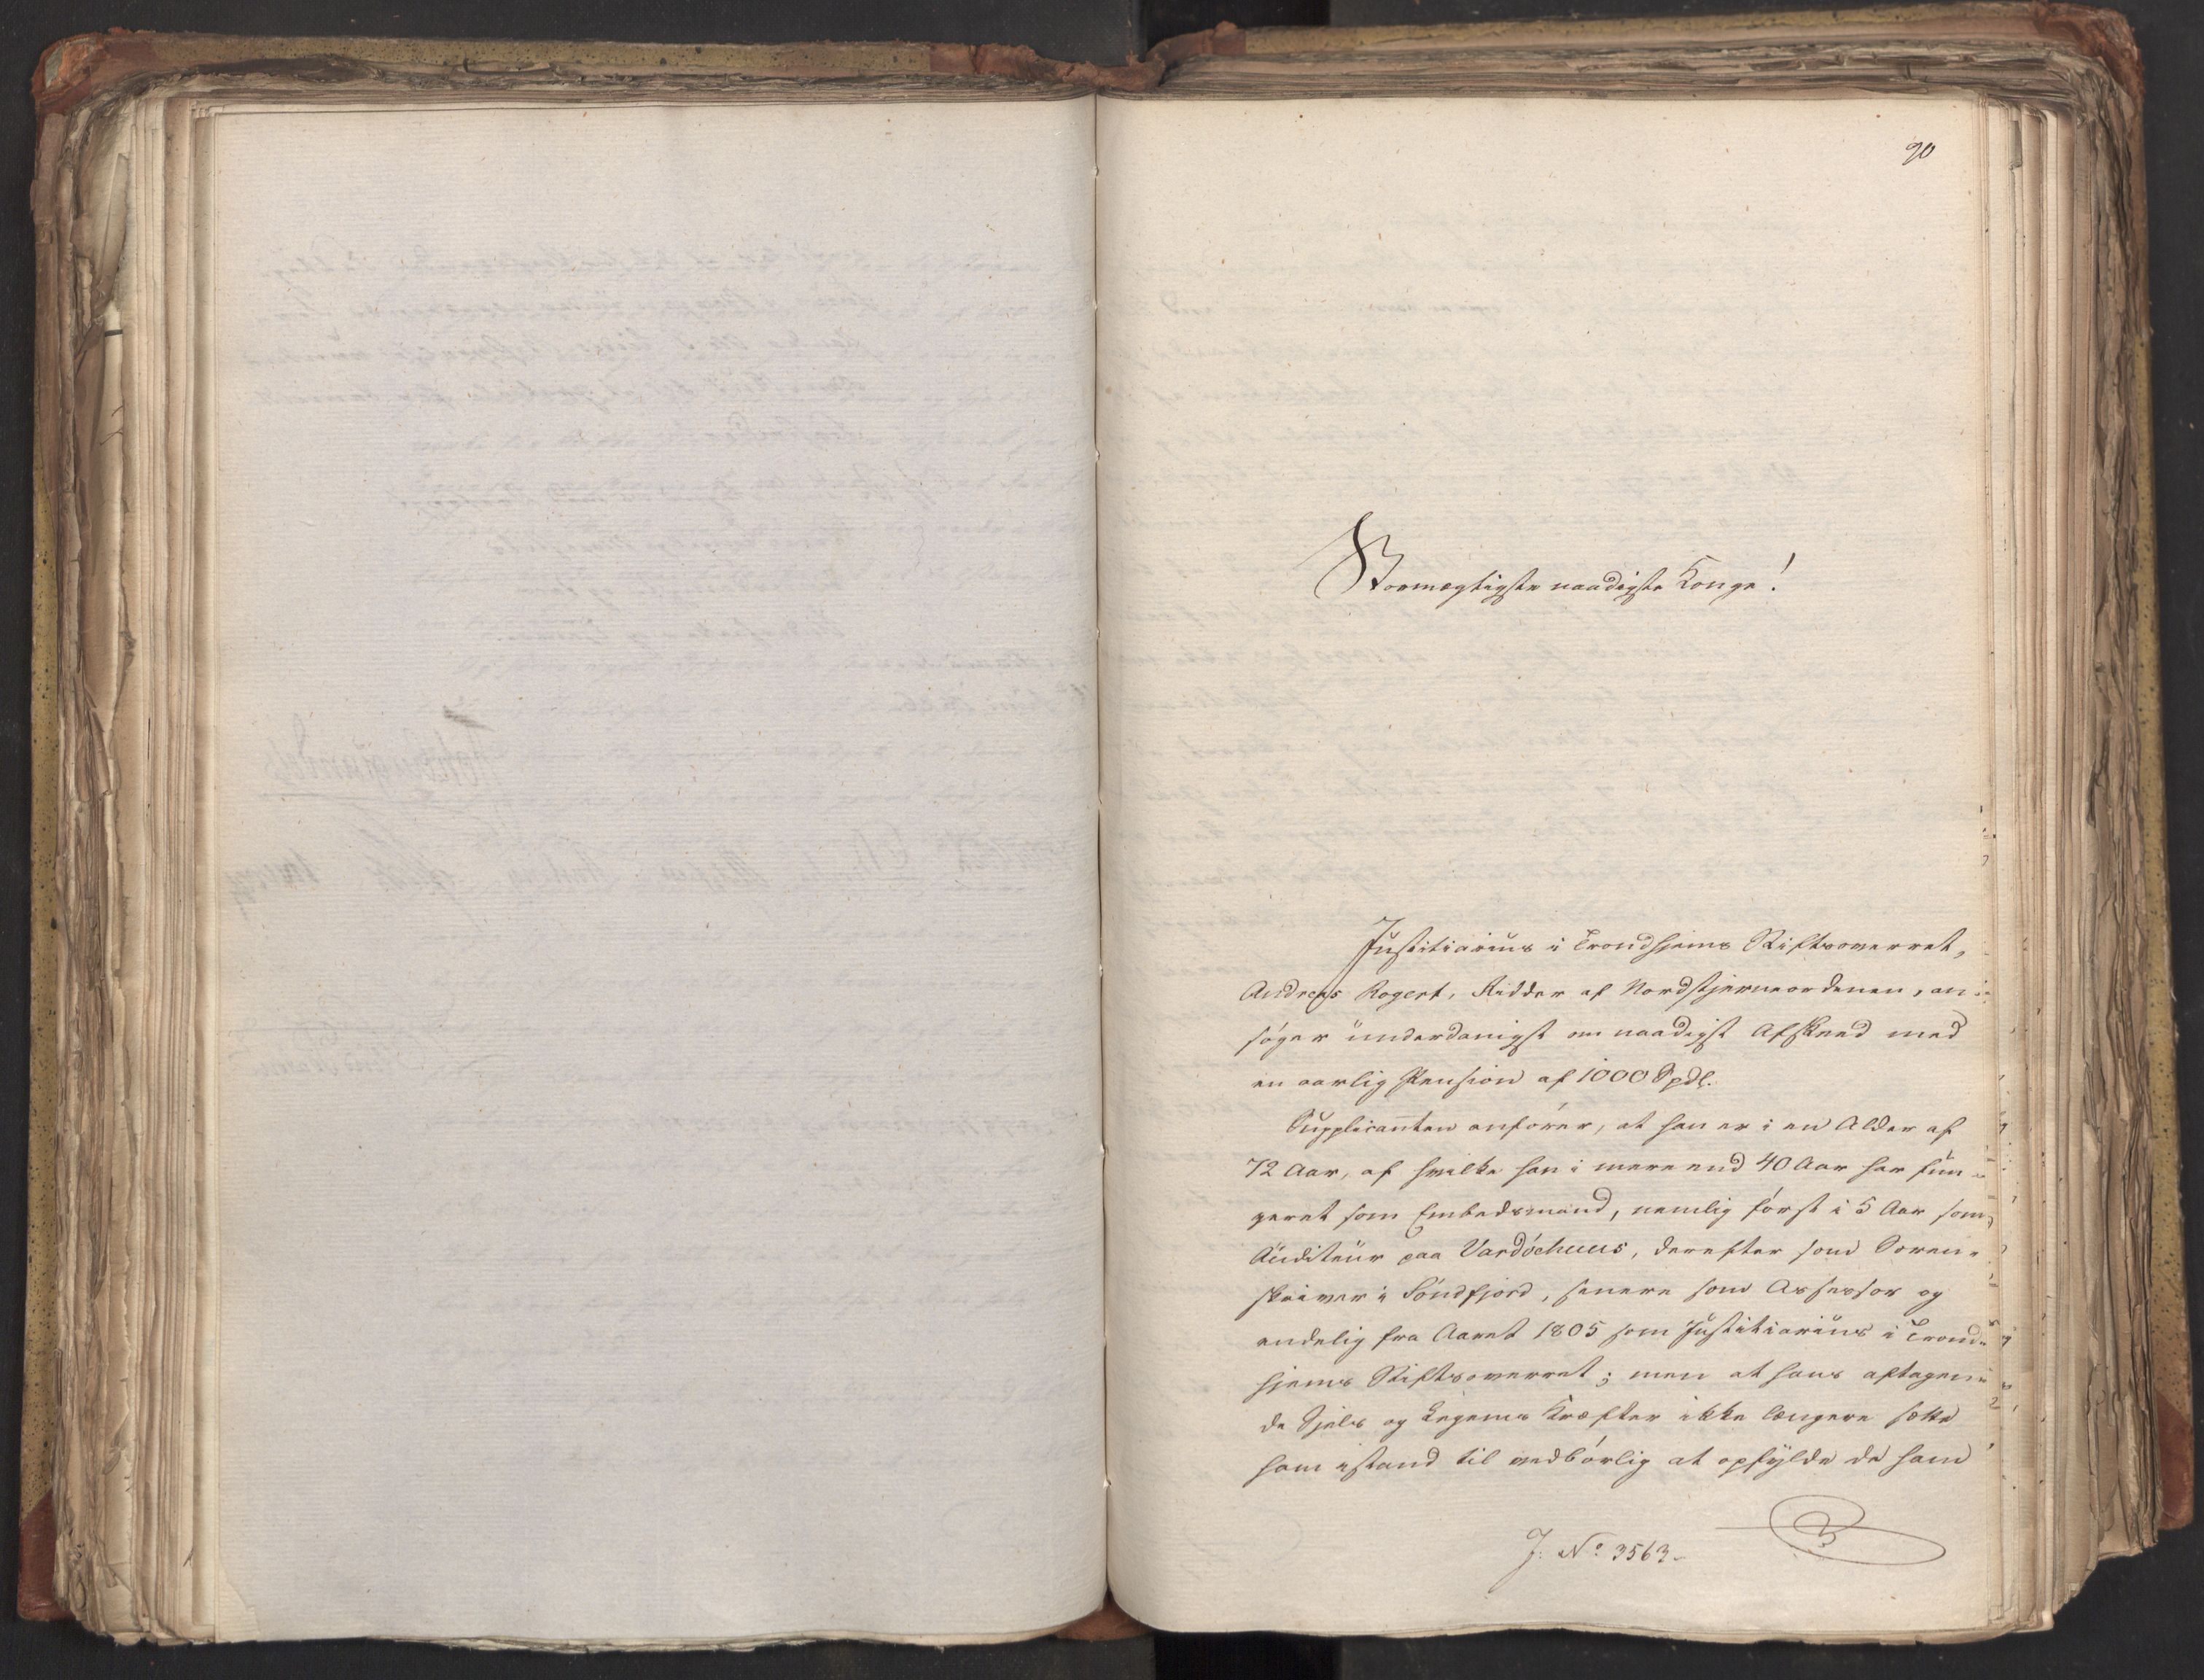 90
Stormægtigste naadigste Konge!
Justitiarius i Trondhjems Stiftsoverret,
Andreas Rogert, Ridder af Nordstjerneordenen, an-
søger underdanigst om naadigst Afskeed med
en aarlig Pension af 1000 Spdl.
Supplicanten anfører, at han er i en Alder af
72 Aar, af hvilke han i mere end 40 Aar har fun-
geret som Embedsmand, nemlig først i 5 Aar som
Auditeur paa Vardöehuus, derefter som Soren-
skriver i Söndfjord, senere som Assessor og
endelig fra Aaret 1805 som Justitiarius i Trond-
hjems Stiftsoverret; men at hans aftagen-
de Sjels og Legems Kræfter ikke længere sætte
ham istand til vedbørlig at opfylde de ham
J: No 3563